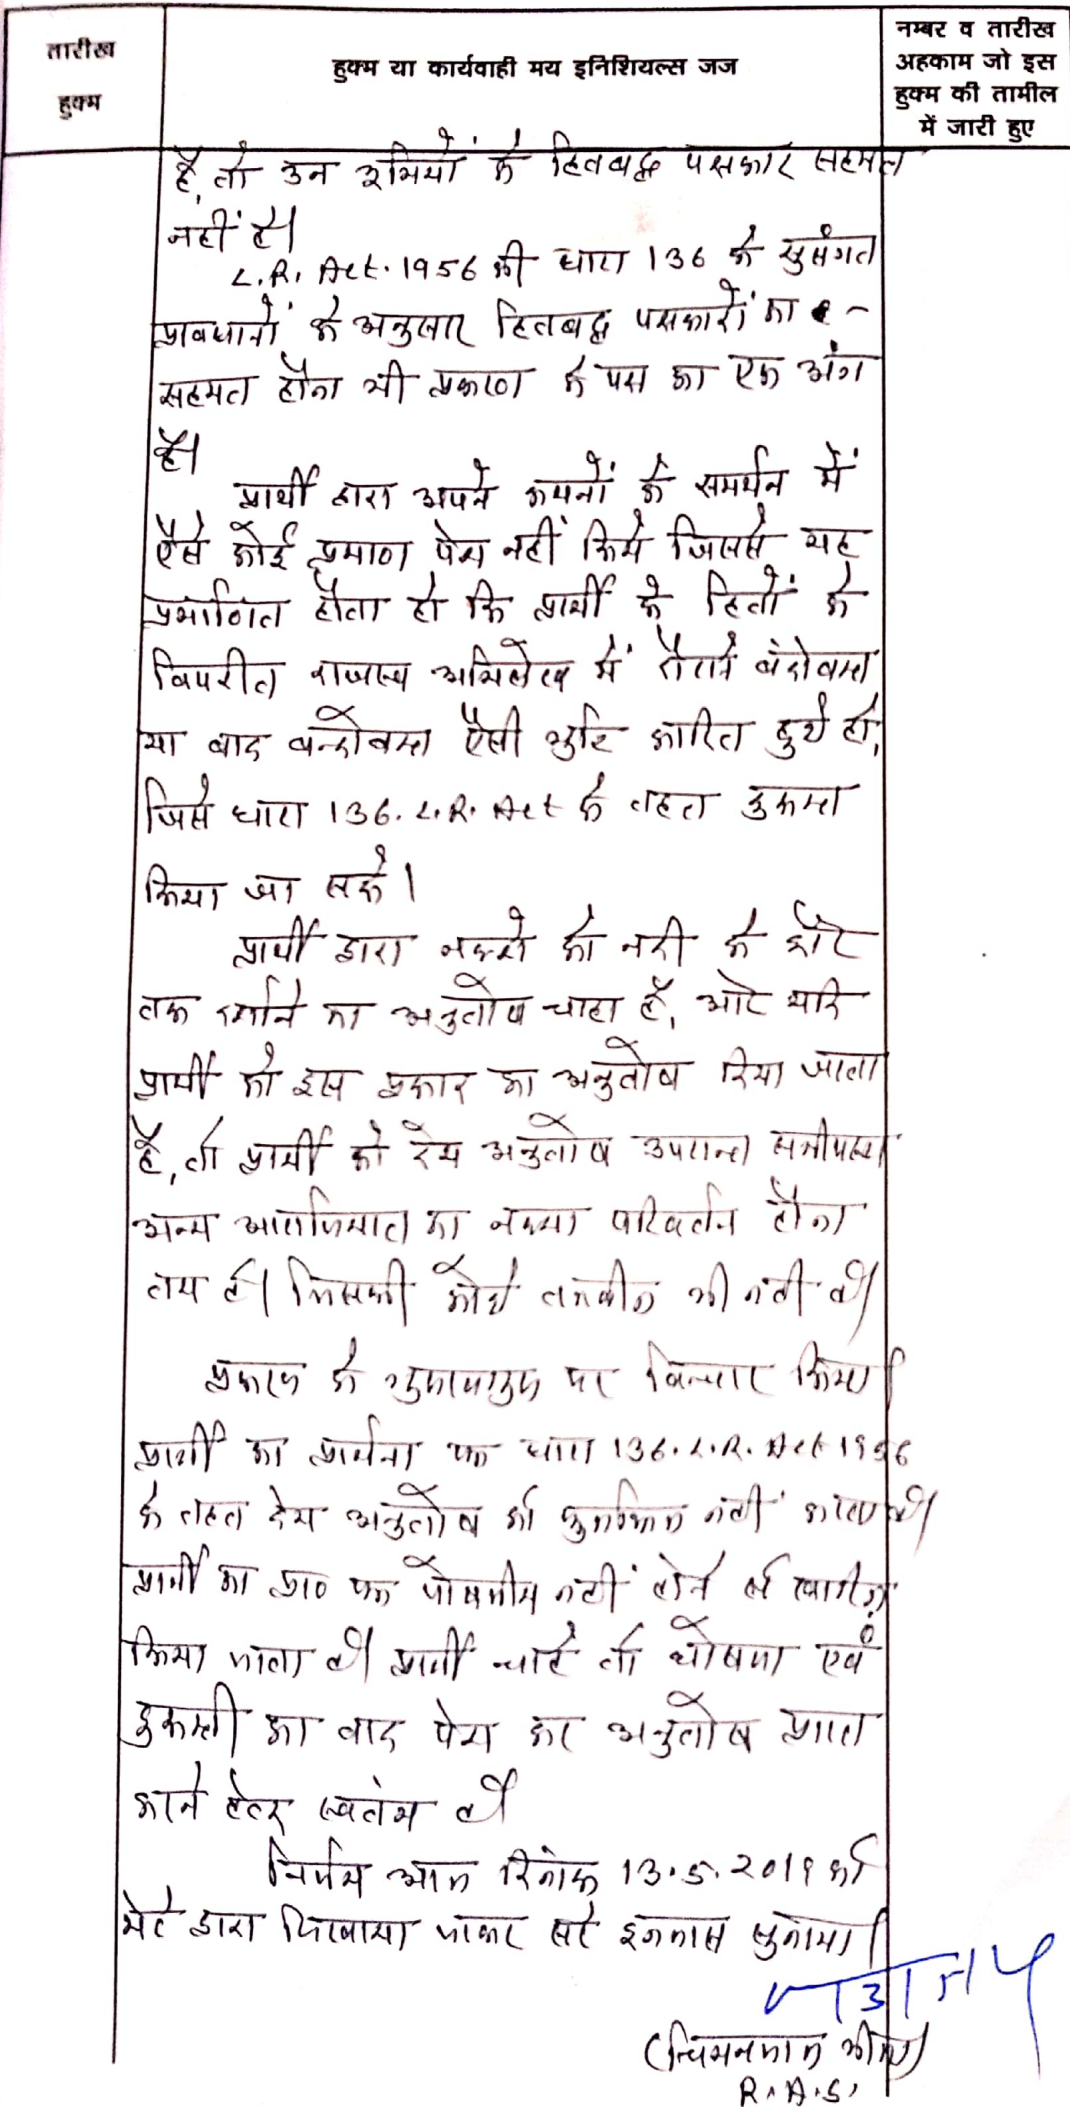 तारीख
हुक्म
हुक्म या कार्यवाही मय इनिशियल्स जज
नम्बर व तारीख
अहकाम जो इस
हुक्म की तामील
में जारी हुए
है, तो उन भूमियों के हितबद्ध पक्षकार सहमत
नहीं है।
L.R. Act. 1956 की धारा 136 के सुसंगत
प्रावधानों के अनुसार हितबद्ध पक्षकारों का
सहमत होना भी प्रकरण के पक्ष का एक अंग
है।
प्रार्थी द्वारा अपने कथनों के समर्थन में
ऐसे कोई प्रमाण पेश नहीं किये जिससे यह
प्रमाणित होता हो कि प्रार्थी के हितों के
विपरीत राजस्व अभिलेख में दौराने बंदोवस्त
या बाद बन्दोवस्त ऐसी त्रुटि कारित हुयी हो,
जिसे धारा 136. L.R. Act के तहत दुरूस्त
किया जा सके।
प्रार्थी द्वारा नक्शे को नदी के
तक दर्शाने का अनुतोष चाहा है, और यदि
प्रार्थी को इस प्रकार का अनुतोष दिया जाता
है, तो प्रार्थी को देय अनुतोष उपरान्त समीपस्थ
अन्य आराजियात का नक्शा परिवर्तन होना
तय है। जिसकी कोई तकमीन भी नही है।
प्रकरण के गुणावगुण पर विचार किया।
प्रार्थी का प्रार्थना पत्र धारा 136. L.R. Act 1956
के तहत देय अनुतोष को नहीं करता है।
प्रार्थी का प्रा० पत्र पोषणीय नहीं होने से खारीज
किया जाता है। प्रार्थी चाहे तो घोषणा एवं
दुरूस्ती का वाद पेश कर अनुतोष प्राप्त
करने हेतु स्वतंत्र है।
निर्णय आज दिनांक 13.5.2019 को
मेरे द्वारा लिखवाया जाकर सरे इजलास सुनाया।
(चिमनलाल मीणा)
R.A.S.